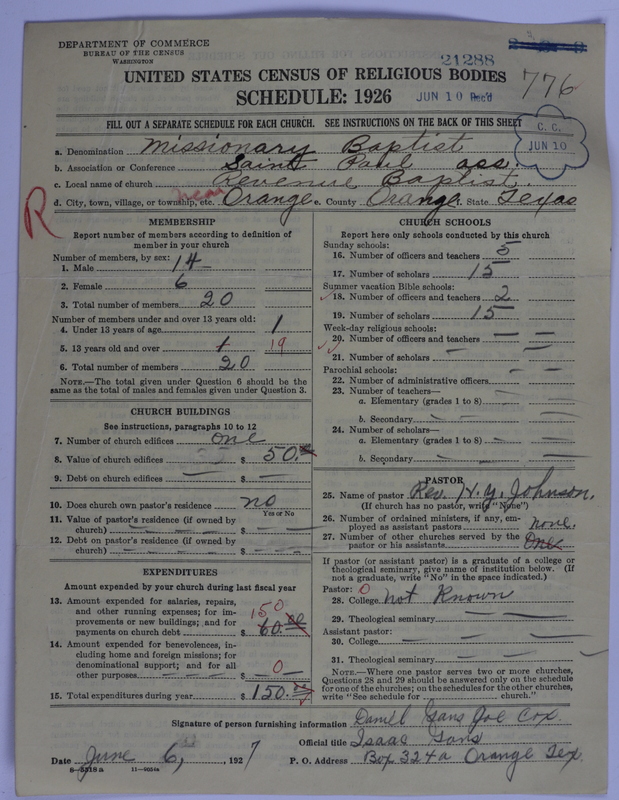 DEPARTMENT OF COMMERCE
BUREAU OF THE CENSUS
WASHINGTON
21288
776
UNITED STATES CENSUS OF RELIGIOUS BODIES
SCHEDULE: 1926
JUN 10 Rec'd
FILL OUT A SEPARATE SCHEDULE FOR EACH CHURCH. SEE INSTRUCTIONS ON THE BACK OF THIS SHEET
C. C.
JUN 10
a. Denomination Missionary Baptist
b. Association or Conference Saint Paul ass.
c. Local name of church Revenue Baptist.
d. City, town, village, or township, etc. near Orange e. County Orange State Texas
R
MEMBERSHIP
Report number of members according to definition of
member in your church
Number of members, by sex:
1. Male 14
2. Female 6
3. Total number of members 20
Number of members under and over 13 years old:
4. Under 13 years of age 1
5. 13 years old and over 1 19
6. Total number of members 20
NOTE.—The total given under Question 6 should be the
same as the total of males and females given under Question 3.
CHURCH BUILDINGS
See instructions, paragraphs 10 to 12
7. Number of church edifices one
8. Value of church edifices $ 50.
9. Debt on church edifices $
10. Does church own pastor's residence no
Yes or No
11. Value of pastor's residence (if owned by
church) $
12. Debt on pastor's residence (if owned by
church) $
EXPENDITURES
Amount expended by your church during last fiscal year
13. Amount expended for salaries, repairs,
and other running expenses; for im-
provements or new buildings; and for
payments on church debt $ 150 60.00
14. Amount expended for benevolences, in-
cluding home and foreign missions; for
denominational support; and for all
other purposes 0
15. Total expenditures during year $ 150.
CHURCH SCHOOLS
Report here only schools conducted by this church
Sunday schools:
16. Number of officers and teachers 5
17. Number of scholars 15
Summer vacation Bible schools:
18. Number of officers and teachers 2
19. Number of scholars 15
Week-day religious schools:
20. Number of officers and teachers
21. Number of scholars
Parochial schools:
22. Number of administrative officers
23. Number of teachers—
a. Elementary (grades 1 to 8)
b. Secondary
24. Number of scholars—
a. Elementary (grades 1 to 8)
b. Secondary
PASTOR
25. Name of pastor Rev. H. Y. Johnson.
(If church has no pastor, write "None")
26. Number of ordained ministers, if any, em-
ployed as assistant pastors none.
27. Number of other churches served by the
pastor or his assistants One
If pastor (or assistant pastor) is a graduate of a college or
theological seminary, give name of institution below. (If
not a graduate, write "No" in the space indicated.)
Pastor: 0
28. College not Known
29. Theological seminary
Assistant pastor:
30. College
31. Theological seminary
NOTE.—Where one pastor serves two or more churches,
Questions 28 and 29 should be answered only on the schedule
for one of the churches; on the schedules for the other churches,
write "See schedule for church."
Signature of person furnishing information Daniel Gans Joe Cox
Official title Isaac Gans
Date June 6, 1927 P. O. Address Box 324a Orange Tex.
8—5318 a 11—9054a